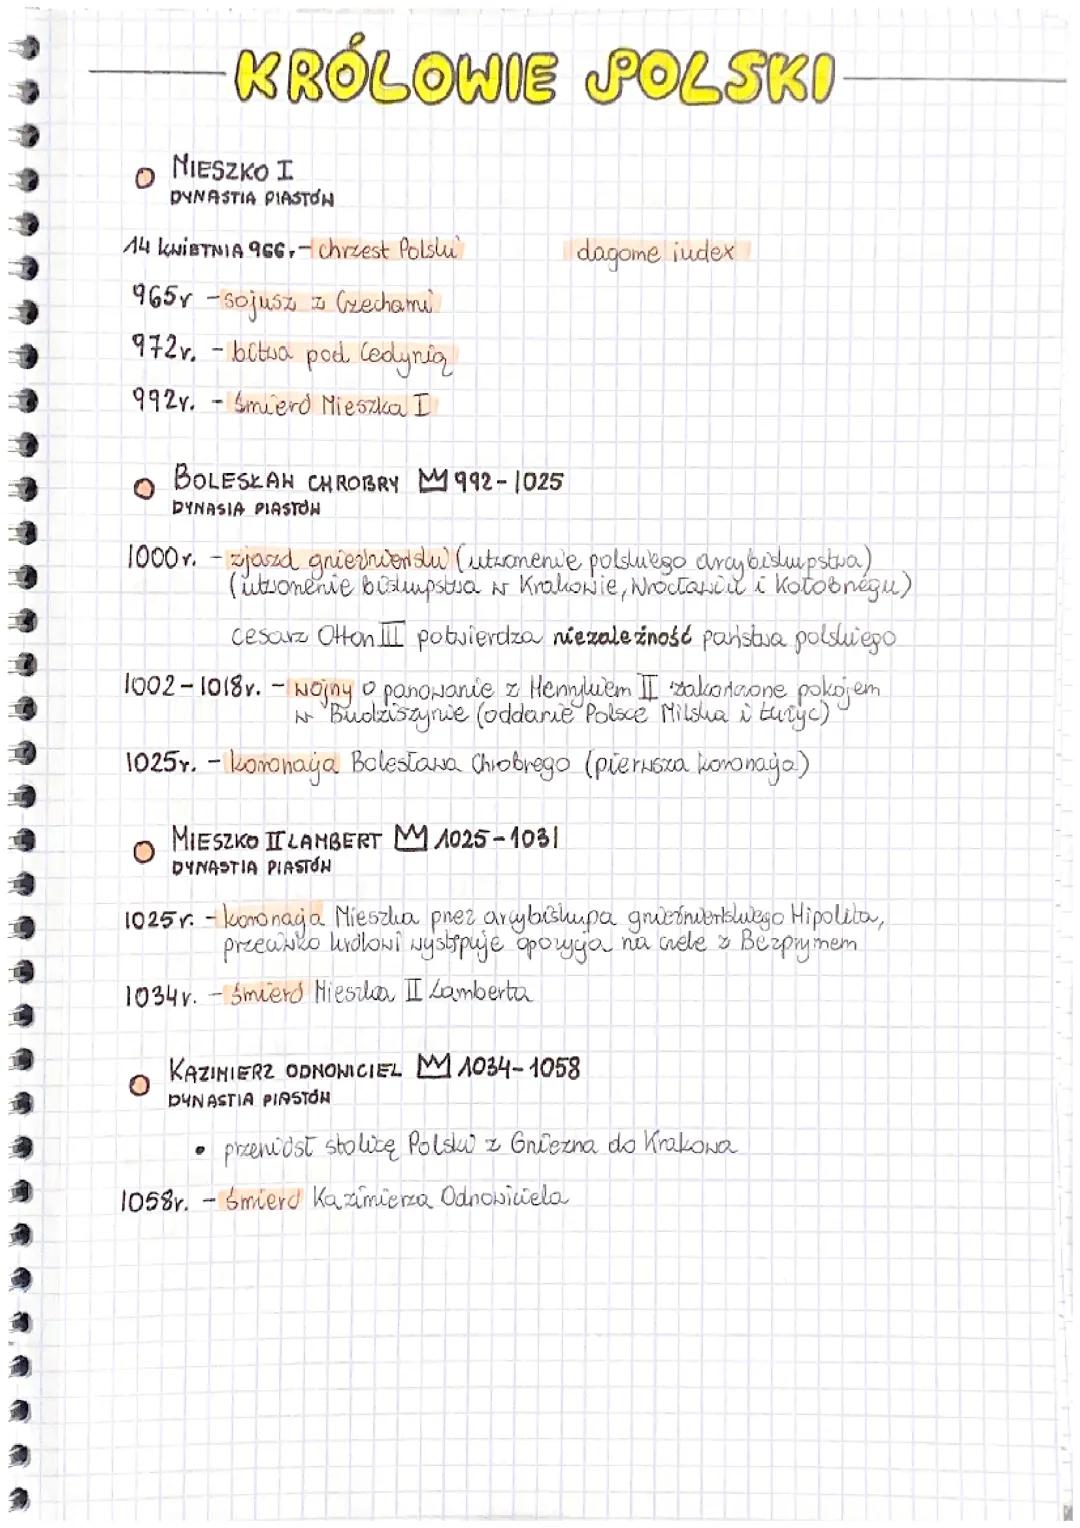 KRÓLOWIE POLSKI
MIESZKO I
DYNASTIA PIASTÓW
14 KWIETNIA 966r - chrzest Polski
dagome iudex
965r - sojusz z Czechami
972r. - bitwa pod Cedynią
992r. - śmierć Mieszka I
BOLESŁAW CHROBRY 992-1025
DYNASIA PIASTÓW
1000r. - zjazd gnieźnieński (utworzenie polskiego arcybiskupstwa)
(utworzenie biskupstwa w Krakowie, Wrocławiu i Kołobrzegu)
cesarz Otton III potwierdza niezależność państwa polskiego
1002-1018r. - wojny o panowanie z Henrykiem II zakończone pokojem
w Budziszynie (oddanie Polsce Milska i Łużyc)
1025r. - koronacja Bolesława Chrobrego (pierwsza koronacja)
MIESZKO II LAMBERT 1025-1031
DYNASTIA PIASTÓW
1025r. - koronacja Mieszka przez arcybiskupa gnieźnieńskiego Hipolita,
przeciwko królowi występuje opozycja na czele z Bezprymem
1034r. - śmierć Mieszka II Lamberta
KAZIMIERZ ODNOWICIEL 1034-1058
DYNASTIA PIASTÓW
• przeniósł stolicę Polski z Gniezna do Krakowa
1058r. - śmierć Kazimierza Odnowiciela